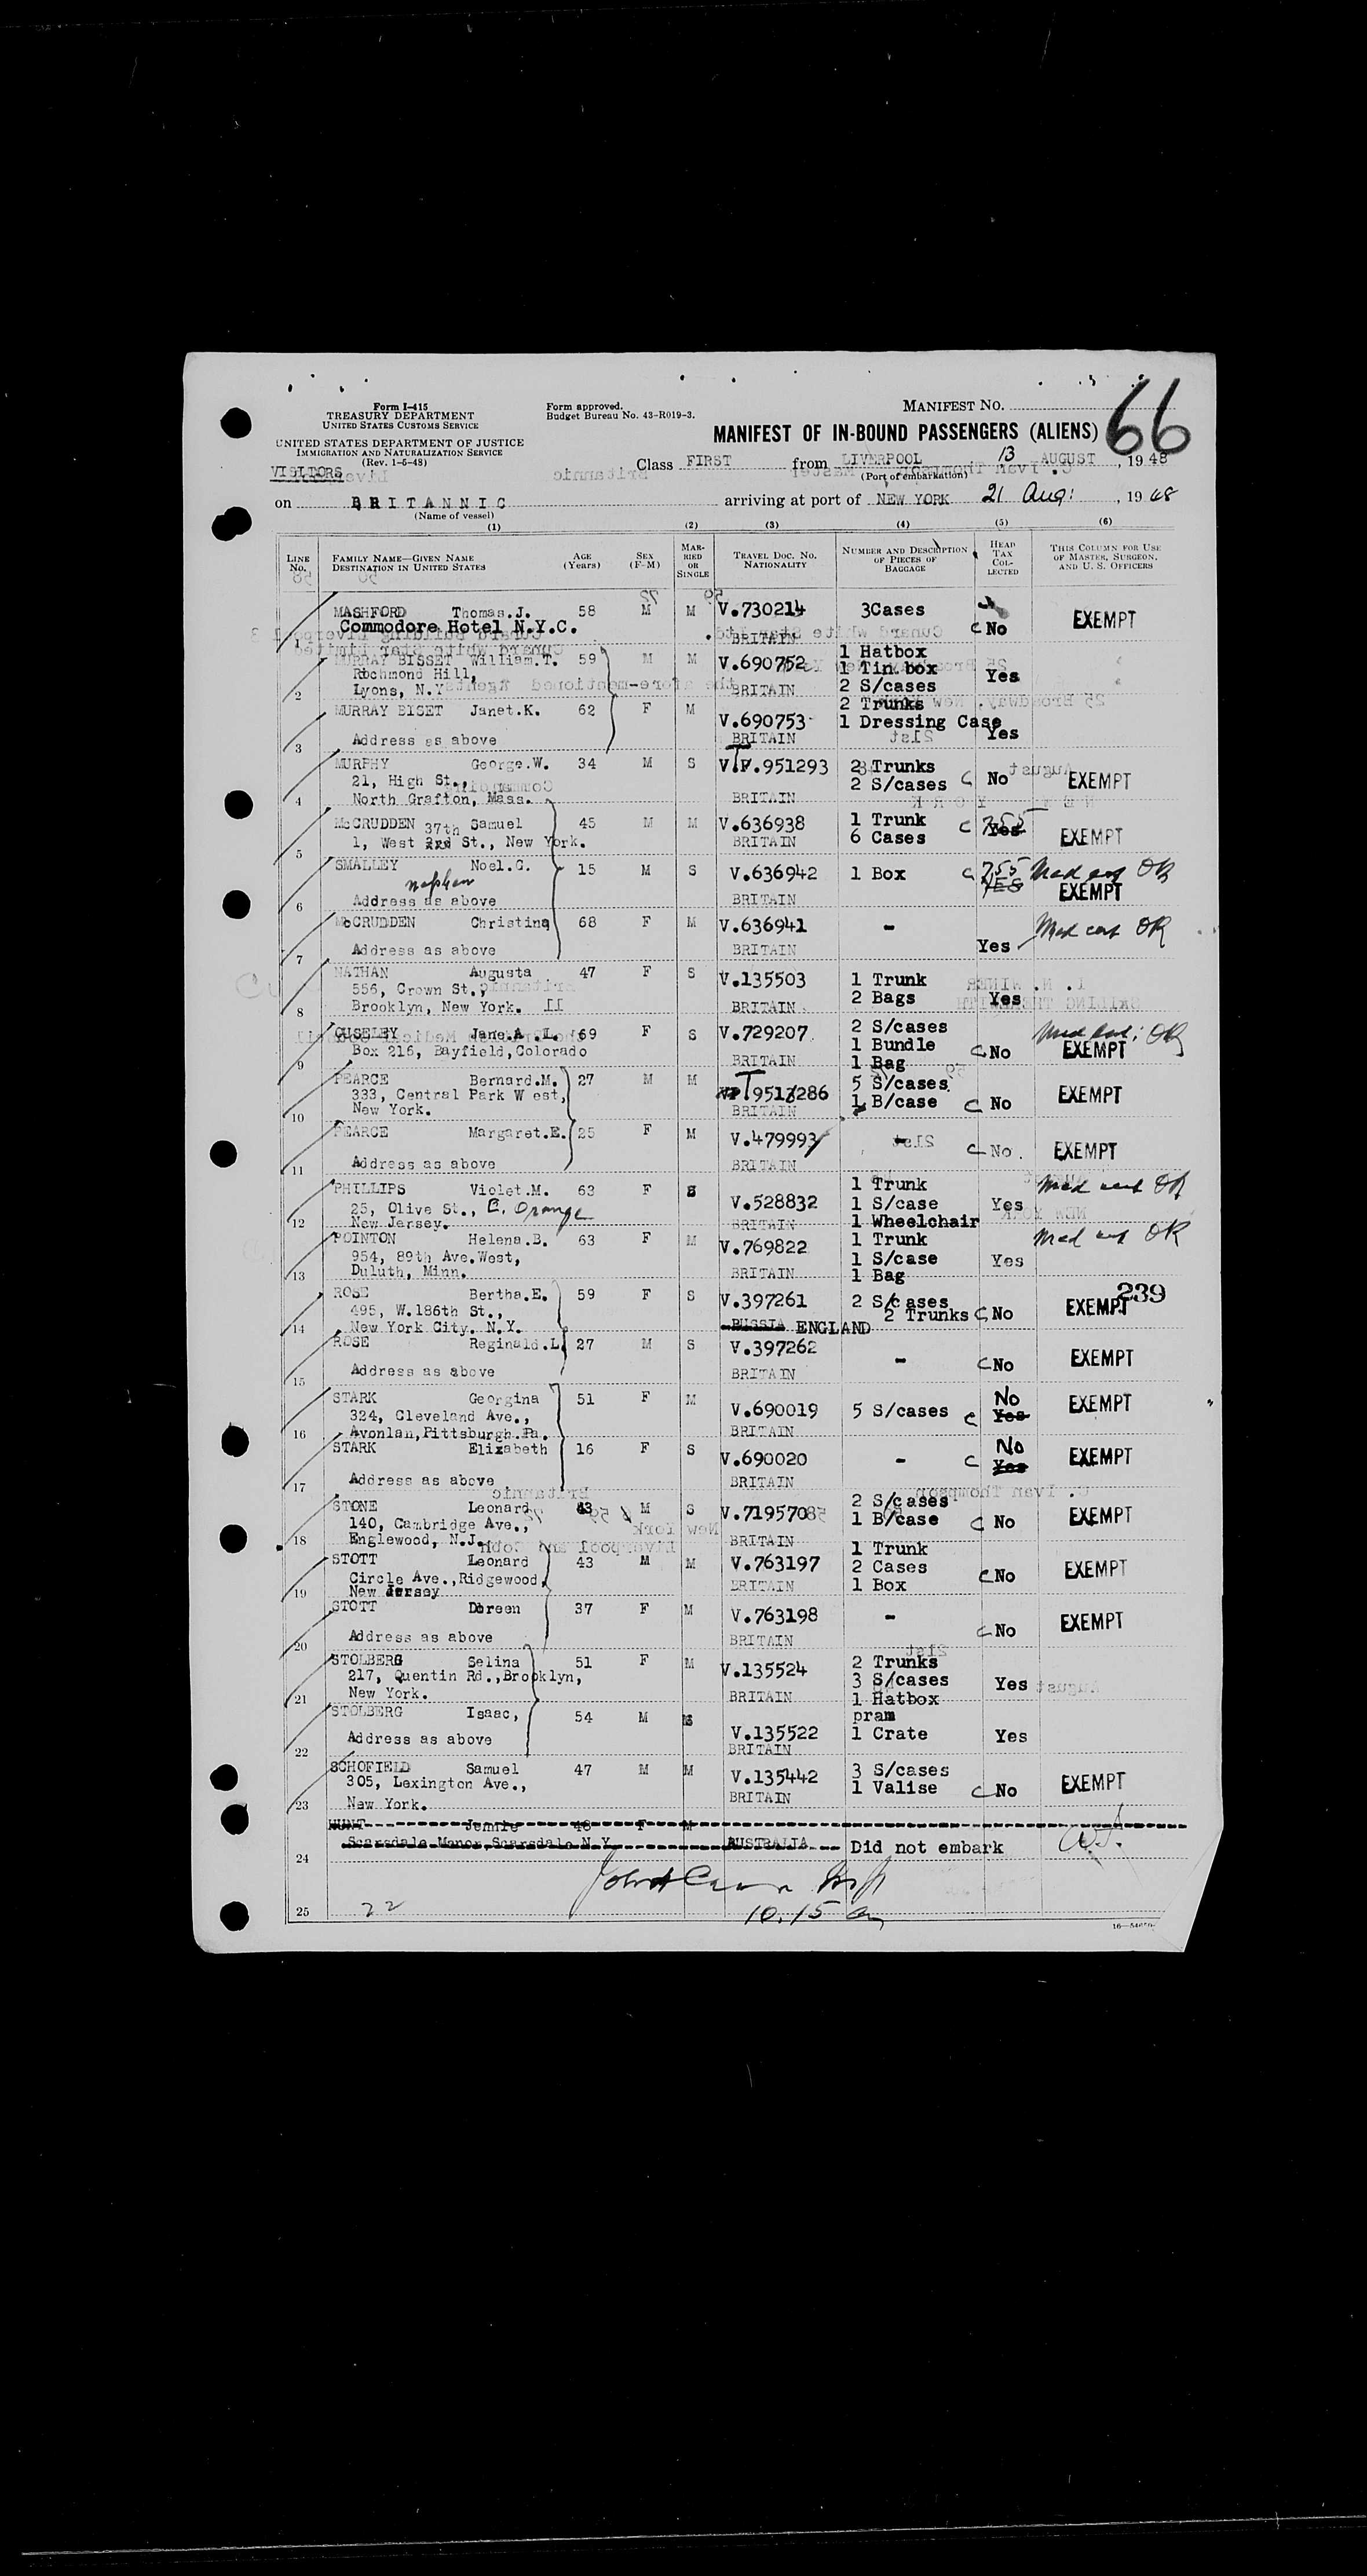 Form I-415
TREASURY DEPARTMENT
UNITED STATES CUSTOMS SERVICE
UNITED STATES DEPARTMENT OF JUSTICE
IMMIGRATION AND NATURALIZATION SERVICE
(Rev. 1-6-48)
VISITORS
Form approved.
Budget Bureau No. 43-R019-3.
MANIFEST NO.
66
MANIFEST OF IN-BOUND PASSENGERS (ALIENS)
Class FIRST from LIVERPOOL 13 AUGUST, 1948
(Port of embarkation)
on BRITANNIC arriving at port of NEW YORK 21 Aug:, 1948
(Name of vessel)
(1) (2) (3) (4) (5) (6)
LINE No. FAMILY NAME—GIVEN NAME DESTINATION IN UNITED STATES AGE (Years) SEX (F-M) MARRIED OR SINGLE TRAVEL DOC. NO. NATIONALITY NUMBER AND DESCRIPTION OF PIECES OF BAGGAGE HEAD TAX COLLECTED THIS COLUMN FOR USE OF MASTER, SURGEON, AND U. S. OFFICERS
MASHFORD Thomas.J. 58 M M V.730214 3Cases
Commodore Hotel N.Y.C. C No EXEMPT
1 BRITAIN
MURRAY BISSET William.T. 59 M M V.690752 1 Hatbox
Richmond Hill, 1 Tin box Yes
2 Lyons, N.Y BRITAIN 2 S/cases
MURRAY BISET Janet.K. 62 F M V.690753 2 Trunks
1 Dressing Case
3 Address as above BRITAIN Yes
MURPHY George.W. 34 M S VT.951293 2 Trunks
21, High St., 2 S/cases C No EXEMPT
4 North Grafton, Mass. BRITAIN
McCRUDDEN Samuel 45 M M V.636938 1 Trunk
1, West 37th 2nd St., New York. BRITAIN 6 Cases C 755 Yes EXEMPT
5
SMALLEY Noel.G. 15 M S V.636942 1 Box C 755 YES Med cert OK
nephew EXEMPT
6 Address as above BRITAIN
McCRUDDEN Christina 68 F M V.636941 - Med cert OK
7 Address as above BRITAIN Yes
NATHAN Augusta 47 F S V.135503 1 Trunk
556, Crown St., 2 Bags
8 Brooklyn, New York. II BRITAIN Yes
OUSELEY Jane.A .L. 69 F S V.729207 2 S/cases Med cert: OK
Box 216, Bayfield,Colorado 1 Bundle C No EXEMPT
9 BRITAIN 1 Bag
PEARCE Bernard.M. 27 M M 5 S/cases
333, Central Park West, 1 B/case C No EXEMPT
10 New York. BRITAIN
PEARCE Margaret.E. 25 F M V.479993 -
11 Address as above BRITAIN C No. EXEMPT
PHILLIPS Violet.M. 63 F S V.528832 1 Trunk Med cert OK
25, Olive St., E. Orange 1 S/case Yes
12 New Jersey. BRITAIN 1 Wheelchair
POINTON Helena.B. 63 F M V.769822 1 Trunk Med cert OK
954, 89th Ave.West, 1 S/case Yes
13 Duluth, Minn. BRITAIN 1 Bag
ROSE Bertha.E. 59 F S V.397261 2 S/cases 239
495, W.186th St., 2 Trunks C No EXEMPT
14 New York City. N.Y. RUSSIA ENGLAND
ROSE Reginald.L. 27 M S V.397262 -
15 Address as above BRITAIN C No EXEMPT
STARK Georgina 51 F M V.690019 5 S/cases C No Yes EXEMPT
324, Cleveland Ave.,
16 Avonlan,Pittsburgh.Pa. BRITAIN
STARK Elizabeth 16 F S V.690020 - C No Yes EXEMPT
17 Address as above BRITAIN
STONE Leonard 43 M S V.719570 2 S/cases
140, Cambridge Ave., 1 B/case C No EXEMPT
18 Englewood, N.J. BRITAIN
STOTT Leonard 43 M M V.763197 1 Trunk
Circle Ave.,Ridgewood, 2 Cases C No EXEMPT
19 New Jersey BRITAIN 1 Box
STOTT Doreen 37 F M V.763198 - EXEMPT
20 Address as above BRITAIN C No
STOLBERG Selina 51 F M V.135524 2 Trunks
217, Quentin Rd.,Brooklyn, 3 S/cases Yes
21 New York. BRITAIN 1 Hatbox
STOLBERG Isaac, 54 M M pram
22 Address as above V.135522 1 Crate Yes
BRITAIN
SCHOFIELD Samuel 47 M M V.135442 3 S/cases
305, Lexington Ave., 1 Valise C No EXEMPT
23 New York. BRITAIN
HUNT Jennie 48 F M
24 Scarsdale Manor,Scarsdale N.Y AUSTRALIA Did not embark
25 22 10.15 am